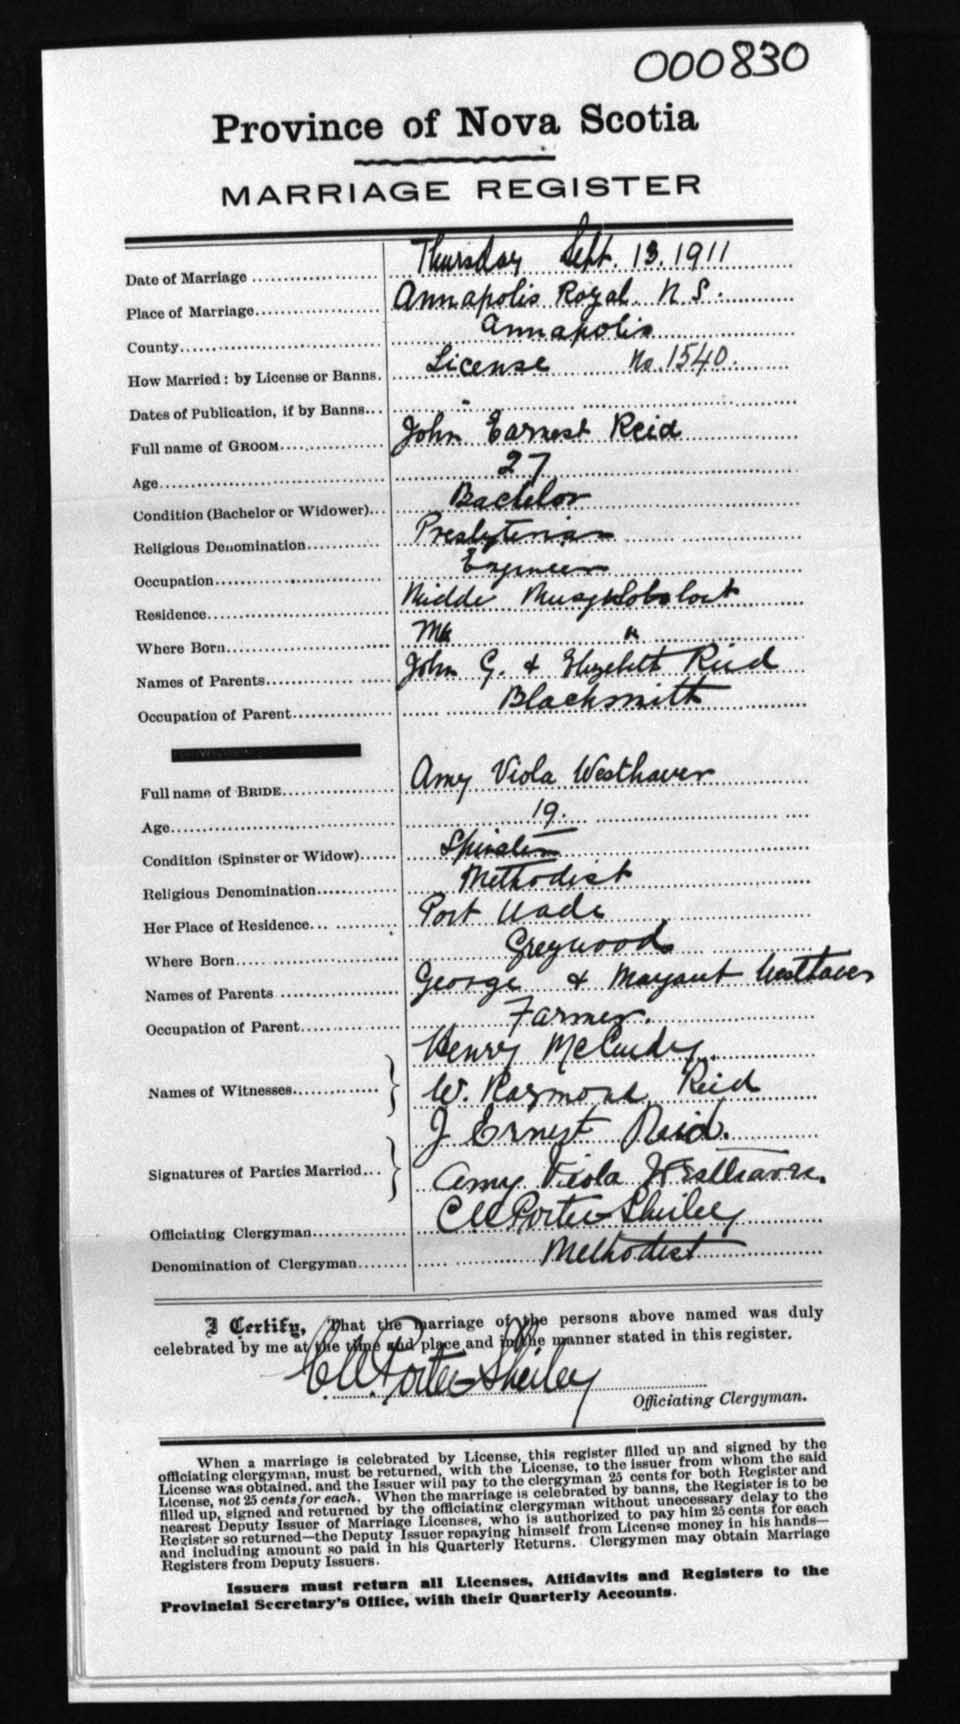 000830
Province of Nova Scotia
MARRIAGE REGISTER
Date of Marriage Thursday Sept. 13. 1911
Place of Marriage Annapolis Royal. N. S.
County Annapolis
How Married: by License or Banns. License No. 1540.
Dates of Publication, if by Banns
Full name of GROOM John Earnest Reid
Age 27
Condition (Bachelor or Widower) Bachelor
Religious Denomination Presbyterian
Occupation Engineer
Residence
Where Born
Names of Parents John G. & Elizabeth Reid
Occupation of Parent Blacksmith
Full name of BRIDE Amy Viola Westhaver
Age 19.
Condition (Spinster or Widow) Spinster
Religious Denomination Methodist
Her Place of Residence Port Wade
Where Born Greywood
Names of Parents George & Margaret Westhaver
Occupation of Parent Farmer.
Henry McCurdy.
Names of Witnesses W. Raymond Reid
J Ernest Reid.
Signatures of Parties Married Amy Viola Westhaver.
Officiating Clergyman Porter Shirley
Denomination of Clergyman Methodist
I Certify, That the marriage of the persons above named was duly
celebrated by me at the time and place and in the manner stated in this register.
Porter Shirley
Officiating Clergyman.
When a marriage is celebrated by License, this register filled up and signed by the
officiating clergyman, must be returned, with the License, to the issuer from whom the said
License was obtained, and the Issuer will pay to the clergyman 25 cents for both Register and
License, not 25 cents for each. When the marriage is celebrated by banns, the Register is to be
filled up, signed and returned by the officiating clergyman without unnecessary delay to the
nearest Deputy Issuer of Marriage Licenses, who is authorized to pay him 25 cents for each
Register so returned—the Deputy Issuer repaying himself from License money in his hands—
and including amount so paid in his Quarterly Returns. Clergymen may obtain Marriage
Registers from Deputy Issuers.
Issuers must return all Licenses, Affidavits and Registers to the
Provincial Secretary's Office, with their Quarterly Accounts.